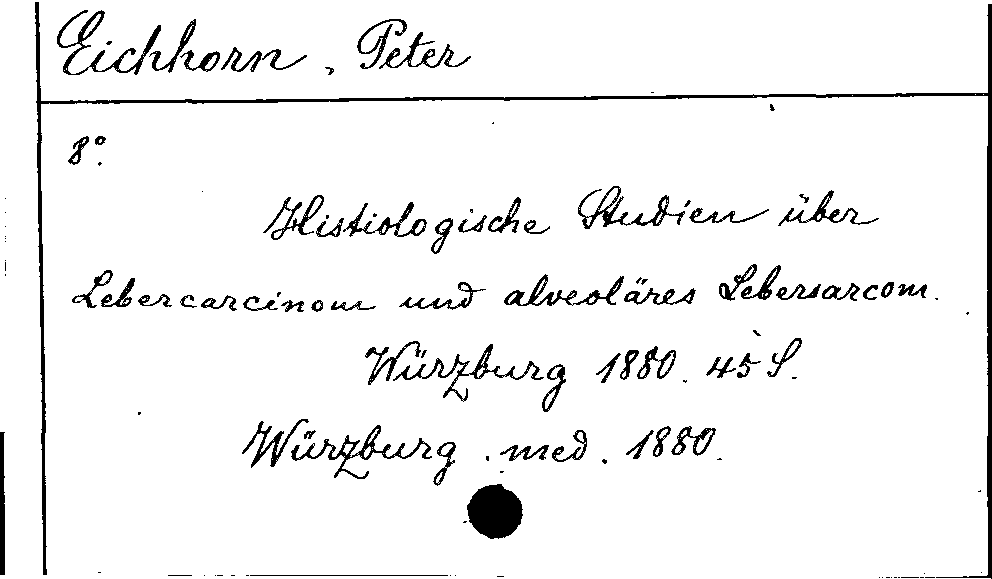 Eichhorn, Peter
8°.
Histiologische Studien über
Lebercarcinom und alveoläres Lebersarcom.
Würzburg 1880. 45 S.
Würzburg. med. 1880.